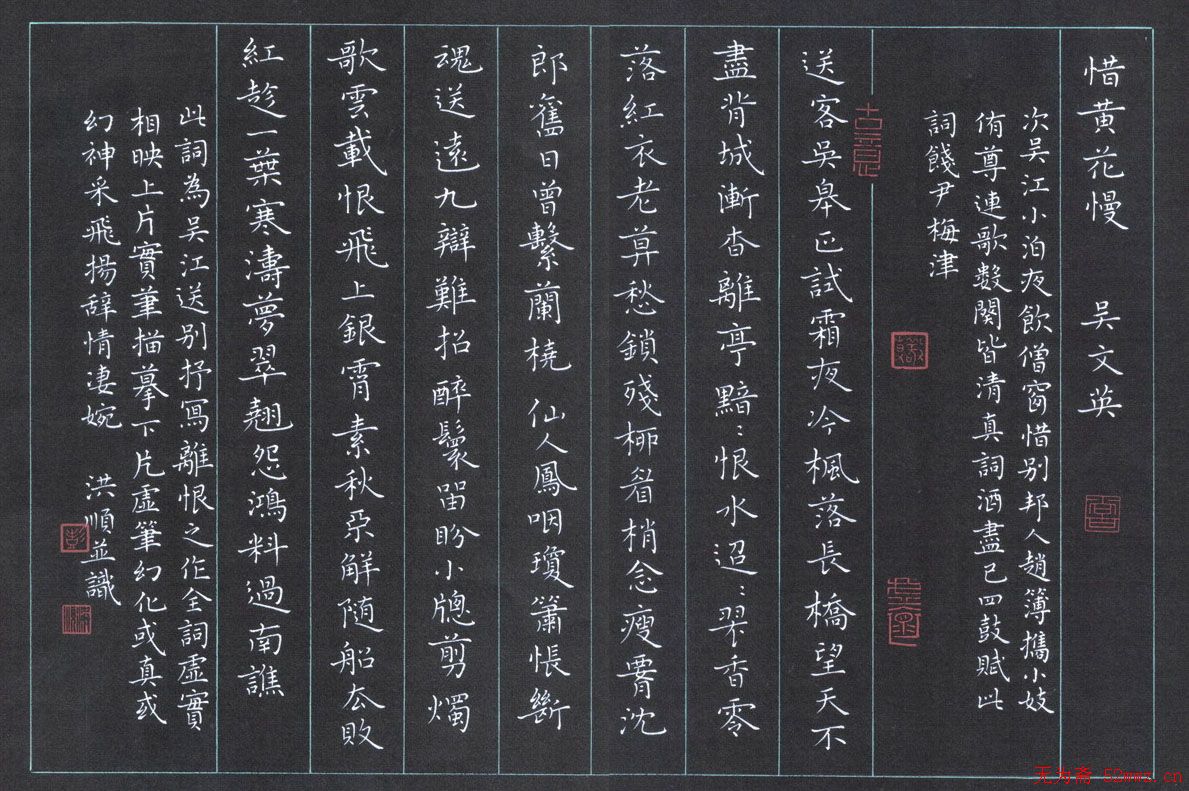 惜黄花慢　吴文英
次吴江小泊夜飲僧窗惜别邦人趙簿攜小妓
侑尊連歌数闋皆清真詞酒盡已四鼓賦此
詞餞尹梅津
古意
送客吳皋正試霜夜冷楓落長橋望天不
盡背城漸杳離亭黯〻恨水迢〻翠香零
落紅衣老暮愁鎖殘柳眉梢念瘦腰沈
郎舊日曾繫蘭橈　仙人鳳咽瓊簫悵斷
魂送遠九辯難招醉鬟留盼小牕剪燭
歌雲載恨飛上銀霄素秋不解随船去敗
紅趁一葉寒濤夢翠翹怨鴻料過南譙
此詞為吴江送别抒寫離恨之作全詞虚實
相映上片實筆描摹下片虚筆幻化或真或
幻神采飛揚辞情淒婉　洪順並識
无为斋